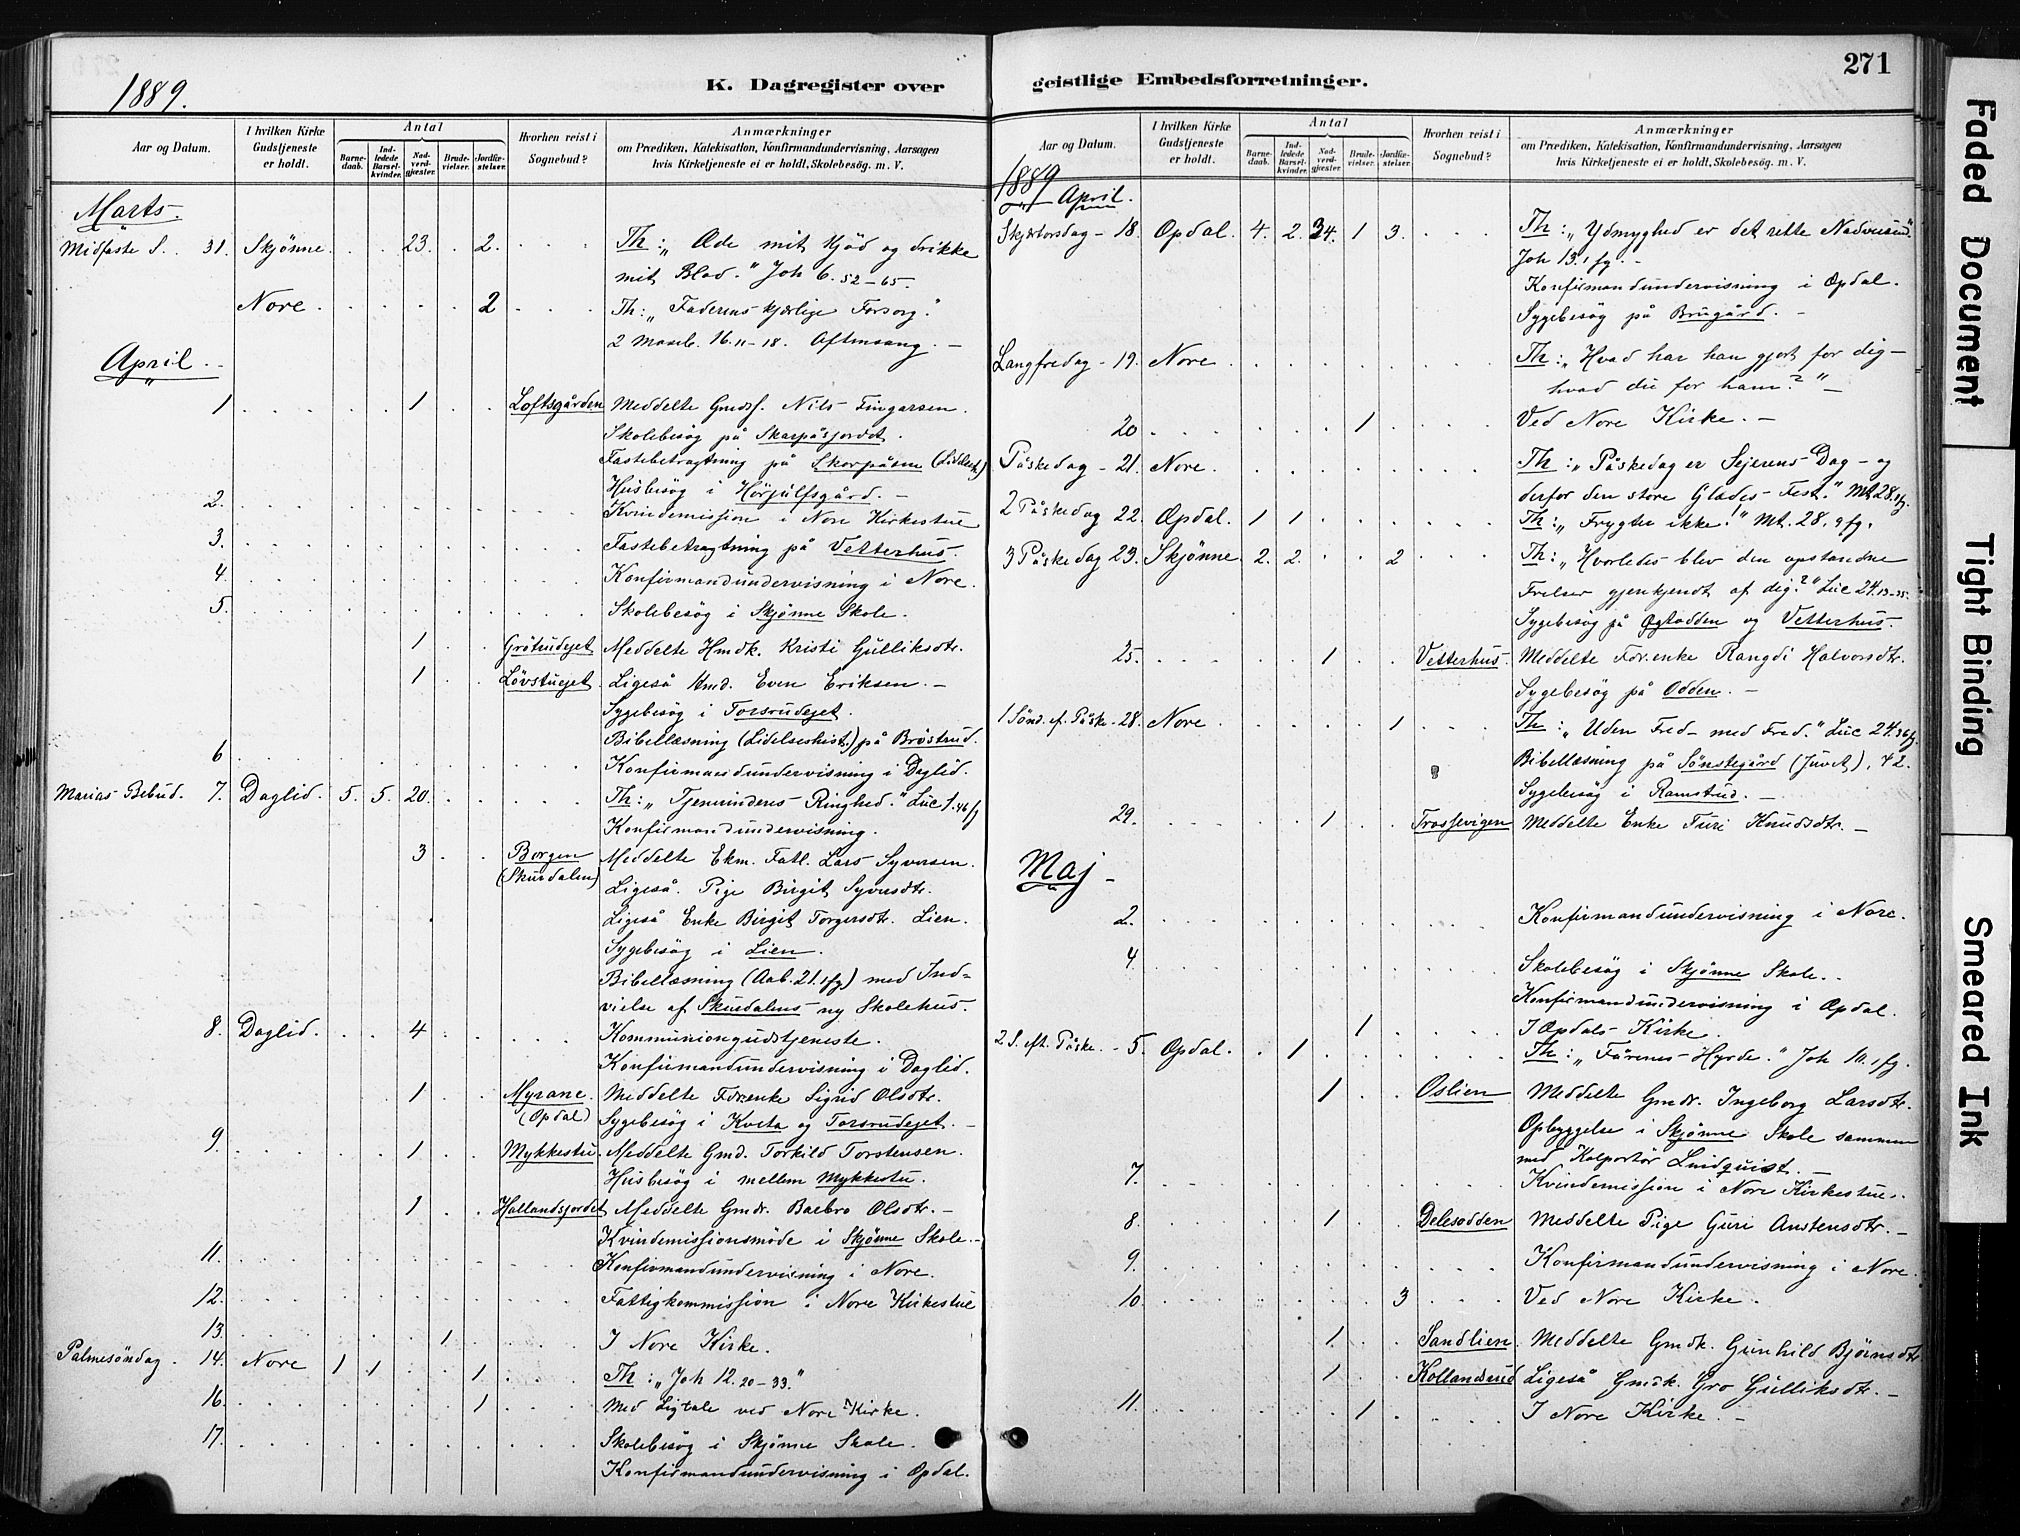 271
1889.
K. Dagregister over
Aar og Datum.
I hvilken Kirke Gudstjeneste er holdt.
Antal
Barne-daab.
Ind-ledede Barsel-kvinder.
Nad-verd-gjæster.
Brude-vielser.
Jordfæ-stelser.
Hvorhen reist i Sognebud?
Anmærkninger
om Prædiken, Katekisation, Konfirmandundervisning, Aarsagen
hvis Kirketjeneste ei er holdt, Skolebesøg. m. V.
Marts.
Midfaste S. 31. Skjønne. 23. 2. Th: „Æde mit Kjød og drikke
mit Blod." Joh 6. 52-65.
Nore. 2 Th: „Faderens kjærlige Forsorg."
2 Moseb. 16. 11-18. Aftensang. -
April. -
1 1 Loftsgården Meddelte Nils Fingarsen.
Skolebesøg på Skarpåsjordet.
Fastebetragtning på Skorpåsen
Husbesøg i Hørjulfsgård. -
2. Kvindemission i Nore Kirkestue
3. Fastebetragtning på Vetterhus.
4. Konfirmandundervisning i Nore.
5. Skolebesøg i Skjønne Skole.
1 Grötrudejet Meddelte Hmdk. Kristi Gulliksdtr.
1 Lövstuejet. Ligeså Hmd. Even Eriksen. -
Sygebesøg i Torsrudejet.
Bibellæsning (Lidelseshist.) på Bröstrud.
6 Konfirmandundervisning i Daglid.
Marias Bebud. 7. Daglid. 5. 5. 20. Th: „Tjenerindens Ringhed." Luc 1. 46 fg
Konfirmandundervisning.
3 Borgen Meddelte Ekm. Fatl. Lars Syversen.
(Skurdalen) Ligeså. Pige Birgit Syversdtr.
Ligeså Enke Birgit Torgersdtr. Lien.
Sygebesøg i Lien.
Bibellæsning (Aab. 21. 1 fg) med Ind-
vielse af Skurdalens ny Skolehus.
8. Daglid. 4 Kommuniongudstjeneste.
Konfirmandundervisning i Daglid.
1 Myrane Meddelte Fdrenke Sigrid Olsdtr.
(Opdal) Sygebesøg i Kveta og Torsrudejet. -
9. 1 Mykkestu. Meddelte Gmd. Torkild Torstensen.
Husbesøg i mellem Mykkestu.
1 Hallandsjordet Meddelte Gmdk. Barbro Olsdtr. -
Kvindemissionsmöde i Skjønne Skole. -
11. Konfirmandundervisning i Nore.
12. Fattigkommission i Nore Kirkestue
13. 1 I Nore Kirke.
Palmesøndag. 14. Nore 1 1 1 Th: „Joh 12. 20-33."
16. 1 Med Ligtale ved Nore Kirke.
17. Skolebesøg i Skjønne Skole.
Konfirmandundervisning i Opdal.
geistlige Embedsforretninger.
Aar og Datum.
I hvilken Kirke Gudstjeneste er holdt.
Antal
Barne-daab.
Ind-ledede Barsel-kvinder.
Nad-verd-gjæster.
Brude-vielser.
Jordfæ-stelser.
Hvorhen reist i Sognebud?
Anmærkninger
om Prædiken, Katekisation, Konfirmandundervisning, Aarsagen
hvis Kirketjeneste ei er holdt, Skolebesøg. m. V.
1889
April.
Skjærtorsdag - 18. Opdal. 4. 2. 34. 1 3. Th: „Ydmyghed er det rette Nadversind"
Joh 13. 1 fg. -
Konfirmandundervisning i Opdal.
Sygebesøg på Brugård. -
Langfredag - 19. Nore. Th: „Hvad har han gjort for dig -
hvad du for ham?" -
20 1 Ved Nore Kirke. -
Påskedag - 21. Nore. Th: „Påskedag er Sejerens Dag - og
derfor den store Glædes-Fest." Mt 28. 1 fg
2 Påskedag 22. Opdal. 1 1 Th: „Frygter ikke!" Mt. 28. 9 fg.
3 Påskedag 23. Skjønne. 2. 2. 2 Th: „Hvorledes blev den opstandne
Frelser gjenkjendt af dig?" Luc 24. 13-35.
Sygebesøg på og Vetterhus.
25. 1 Vetterhus. Meddelte Fdr.enke Rangdi Halvorsdtr.
Sygebesøg på Odden. -
1 Sønd. ef. Påske - 28. Nore. 1 Th: „Uden Fred - med Fred." Luc 24. 36 fg.
Bibellæsning på Sönstegård (Juvet), 42.
Sygebesøg i Ramstud. -
29. 1 Meddelte Enke Turi Knudsdtr. -
Maj -
2. Konfirmandundervisning i Nore.
4. Skolebesøg i Skjønne Skole. -
Konfirmandundervisning i Opdal.
1 I Opdals Kirke.
2 S. eft. Påske. - 5. Opdal. 1 Th: „Fårenes Hyrde." Joh 10. 1 fg.
1 Oslien Meddelte Gmdk. Ingeborg Larsdtr.
Opbyggelse i Skjønne Skole sammen
med Kolportör Lindquist. -
7. Kvindemission i Nore Kirkestue.
8. 1 Delesodden Meddelte Pige Guri Anstensdtr. -
9. Konfirmandundervisning i Nore.
10. 3 Ved Nore Kirke.
1. Sandlien Meddelte Gmdk. Gunhild Bjørnsdtr
1 Kollandsrud Ligeså Gmdk. Gro Gulliksdtr. -
11. 1 I Nore Kirke. -
Faded Document
Tight Binding
Smeared Ink